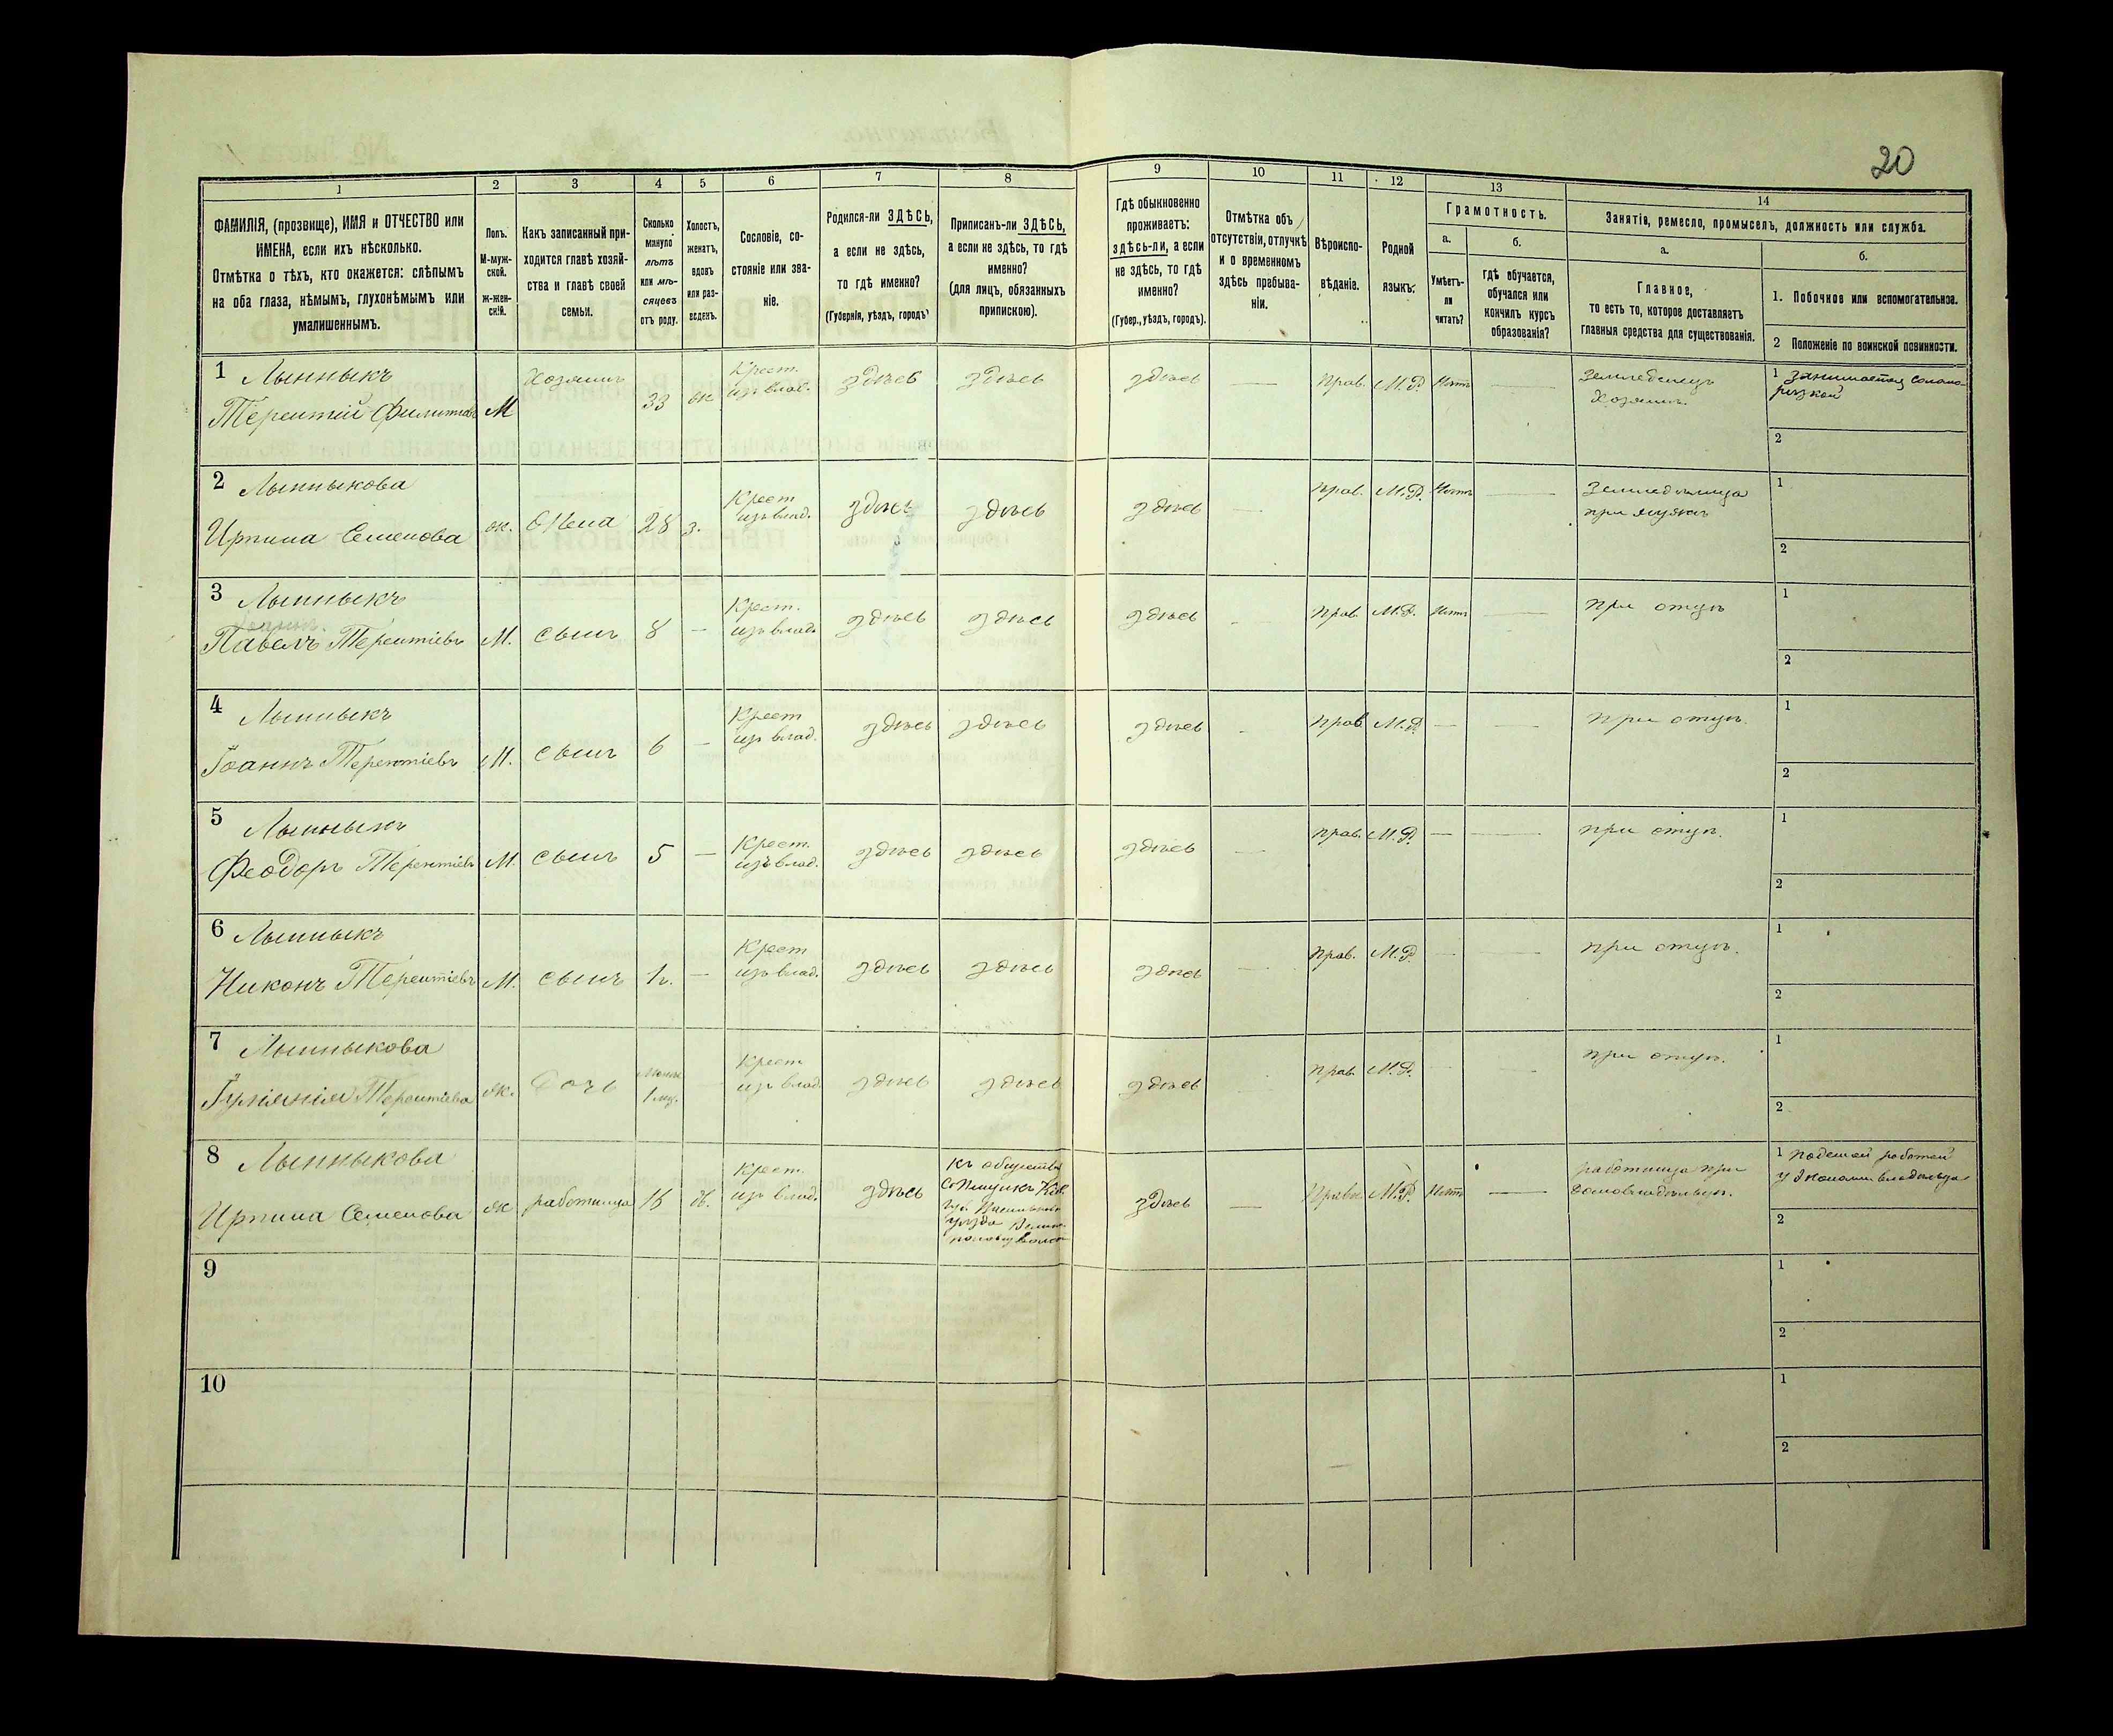 20
1 2 3 4 5 6 7 8 9 10 11 12 13 14
ФАМИЛІЯ, (прозвище), ИМЯ и ОТЧЕСТВО или
ИМЕНА, если ихъ нѣсколько.
Отмѣтка о тѣхъ, кто окажется: слѣпымъ
на оба глаза, нѣмымъ, глухонѣмымъ или
умалишеннымъ.
Полъ.
М-муж-
ской.
ж-жен-
скій.
Какъ записанный при-
ходится главѣ хозяй-
ства и главѣ своей
семьи.
Сколько
минуло
лѣтъ
или мѣ-
сяцевъ
отъ роду.
Холостъ,
женатъ,
вдовъ
или раз-
веденъ.
Сословіе, со-
стояніе или зва-
ніе.
Родился-ли ЗДѢСЬ,
а если не здѣсь,
то гдѣ именно?
(Губернія, уѣздъ, городъ)
Приписанъ-ли ЗДѢСЬ,
а если не здѣсь, то гдѣ
именно?
(для лицъ, обязанныхъ
припискою).
Гдѣ обыкновенно
проживаетъ:
здѣсь-ли, а если
не здѣсь, то гдѣ
именно?
(Губер., уѣздъ, городъ).
Отмѣтка объ
отсутствіи, отлучкѣ
и о временномъ
здѣсь пребыва-
ніи.
Вѣроиспо-
вѣданіе.
Родной
языкъ.
Грамотность.
а.
Умѣетъ-
ли
читать?
б.
гдѣ обучается,
обучался или
кончилъ курсъ
образованія?
Занятія, ремесло, промыселъ, должность или служба.
а.
Главное,
то есть то, которое доставляетъ
главныя средства для существованія.
б.
1. Побочное или вспомогательное.
2 Положеніе по воинской повинности.
1 Лынныкъ
Терентій Филиповъ М Хозяинъ 33 ж Крест. изъ влад. здѣсь здѣсь здѣсь — прав. М.Р. нѣтъ — земледѣлецъ хозяинъ.
1 занимается соломо-
рѣзкой
2
2 Лынныкова
Ирпина Семенова ж. жена 28 з. Крест изъ влад. здѣсь здѣсь здѣсь — прав. М.Р. нѣтъ — земледѣлица при мужѣ
1
2
3 Лынныкъ
Павелъ Терентіевъ М. сынъ 8 — Крест. изъ влад. здѣсь здѣсь здѣсь — прав. М.Р. нѣтъ — при отцѣ
1
2
4 Лынныкъ
Іоаннъ Терентіевъ М. сынъ 6 — Крест изъ влад. здѣсь здѣсь здѣсь — прав М.Р. — — при отцѣ.
1
2
5 Лынныкъ
Феодоръ Терентіевъ М. сынъ 5 — Крест. изъ влад. здѣсь здѣсь здѣсь — прав. М.Р. — — при отцѣ.
1
2
6 Лынныкъ
Никонъ Терентіевъ М. сынъ — Крест изъ влад. здѣсь здѣсь здѣсь — прав. М.Р. — — при отцѣ.
1
2
7 Лынныкова
Іуліанія Терентіева ж. дочь 1 Крест изъ влад здѣсь здѣсь здѣсь прав. М.Р. — — при отцѣ.
1
2
8 Лынныкова
Ирпина Семенова ж работница 16 Крест. изъ влад. здѣсь
къ обществу
уѣзда
здѣсь — Прав. М.Р. нѣтъ — работница при домовладѣльцѣ.
1 работой
у
2
9
1
2
10
1
2